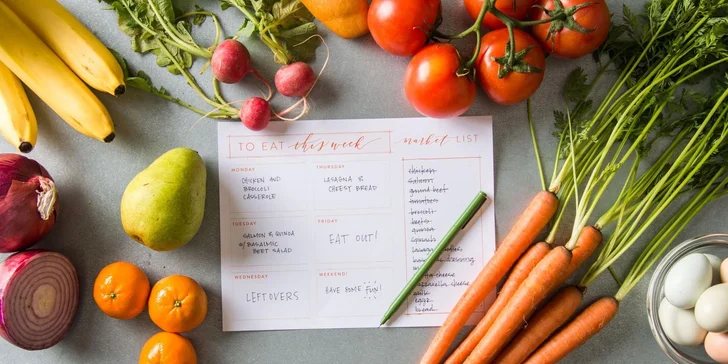 TO EAT this week
market LIST
MONDAY
CHICKEN AND
BROCCOLI
CASSEROLE
THURSDAY
LASAGNA &
CHEESY BREAD
TUESDAY
SALMON & QUINOA
W/ BALSAMIC
BEET SALAD
FRIDAY
EAT OUT!
WEDNESDAY
LEFTOVERS
WEEKEND!
HAVE SOME FUN!
chicken
salmon
ground beef
tomatoes
broccoli
beets
quinoa
spinach
dressing
cheese
mozzarella cheese
milk
eggs
bread